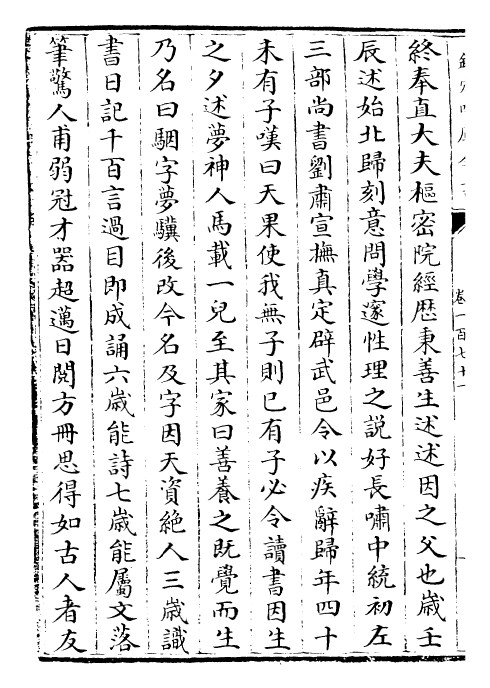 卷一百七十一
終奉直大夫樞密院經歴秉善生述述因之父也歳壬
辰述始北歸刻意問學邃性理之説好長嘯中統初左
三部尚書劉肅宣撫真定辟武邑令以疾辭歸年四十
未有子嘆曰天果使我無子則已有子必令讀書因生
之夕述夢神人馬載一兒至其家曰善養之既覺而生
乃名曰駰字夢驥後改今名及字因天資絶人三歳識
書日記千百言過目即成誦六歳能詩七歳能屬文落
筆驚人甫弱冠才器超邁日閱方冊思得如古人者友